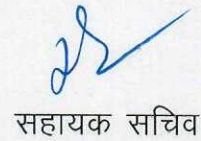 सहायक सचिव